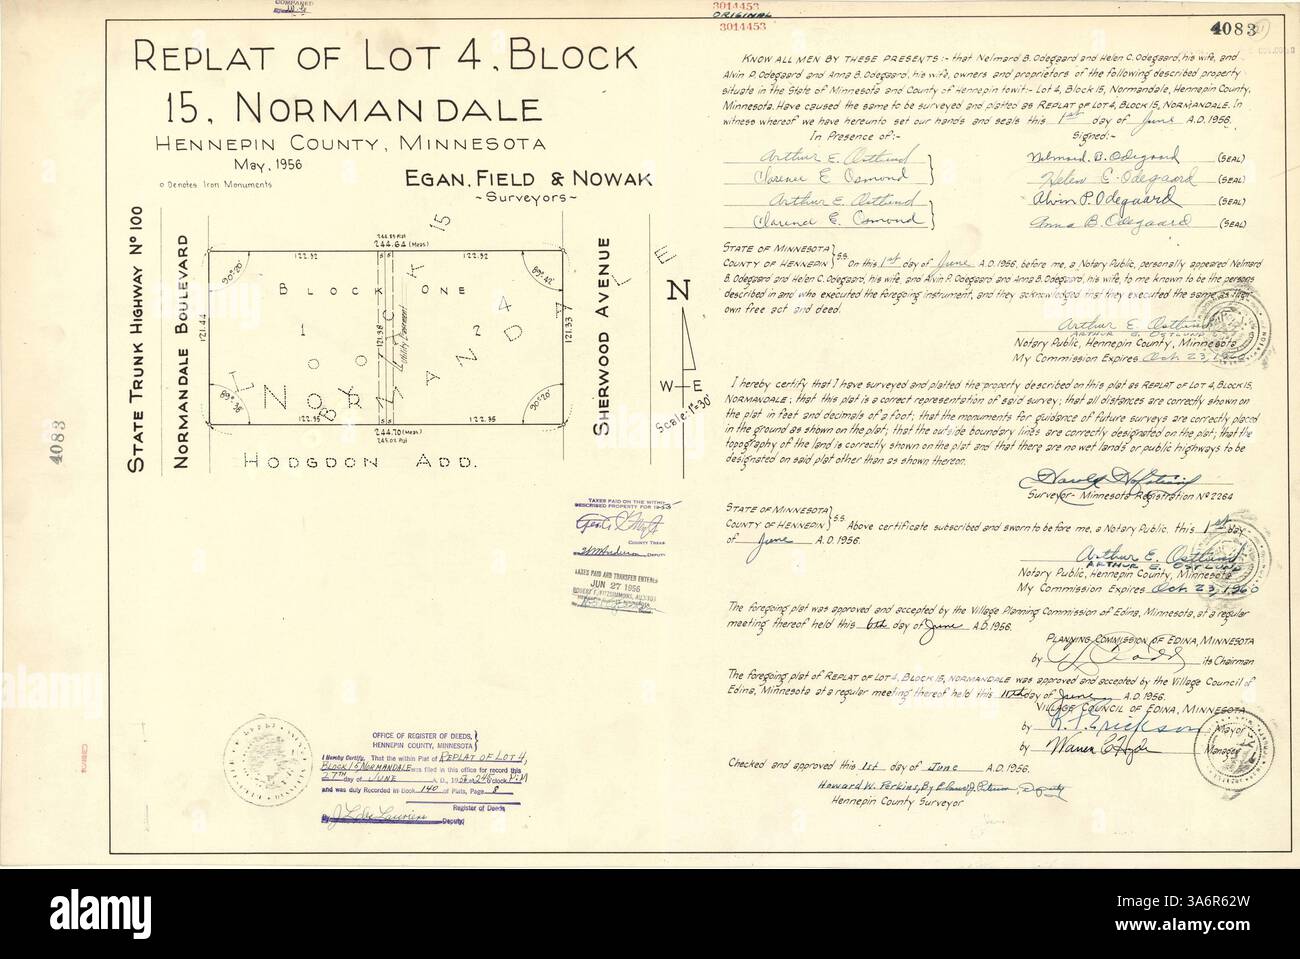 COMPARED
3014453
ORIGINAL
3014453
4083
REPLAT OF LOT 4, BLOCK
15, NORMANDALE
HENNEPIN COUNTY, MINNESOTA
May, 1956
o Denotes Iron Monuments
EGAN, FIELD & NOWAK
~Surveyors~
STATE TRUNK HIGHWAY Nº 100
NORMANDALE BOULEVARD
SHERWOOD AVENUE
244.64 (Meas.)
122.32
5
5
122.32
90°20'
89°42'
BLOCK ONE
121.44
1
121.38
Utility Easement
2
121.33
15
BLOCK
LOT 4
NORMANDALE
89°38'
90°20'
122.35
5
5
122.35
244.70 (Meas.)
245.00 Plat
HODGDON ADD.
N
W E
Scale: 1"=30'
4083
KNOW ALL MEN BY THESE PRESENTS:- that Nelmard B. Odegaard and Helen C. Odegaard, his wife, and
Alvin P. Odegaard and Anna B. Odegaard, his wife, owners and proprietors of the following described property
situate in the State of Minnesota and County of Hennepin towit:- Lot 4, Block 15, Normandale, Hennepin County,
Minnesota. Have caused the same to be surveyed and platted as REPLAT OF LOT 4, BLOCK 15, NORMANDALE. In
witness whereof we have hereunto set our hands and seals this 1st day of June A.D. 1956.
In Presence of:- Signed:-
Arthur E. Ostlund Nelmard. B. Odegaard (SEAL)
Clarence E. Osmond Helen C. Odegaard (SEAL)
Arthur E. Ostlund Alvin P. Odegaard (SEAL)
Clarence E. Osmond Anna B. Odegaard (SEAL)
STATE OF MINNESOTA
COUNTY OF HENNEPIN } S.S. On this 1st day of June A.D. 1956, before me, a Notary Public, personally appeared Nelmard
B. Odegaard and Helen C. Odegaard, his wife, and Alvin P. Odegaard and Anna B. Odegaard, his wife, to me known to be the persons
described in and who executed the foregoing instrument, and they acknowledged that they executed the same as their
own free act and deed.
Arthur E. Ostlund
ARTHUR E. OSTLUND
Notary Public, Hennepin County, Minnesota
My Commission Expires Oct 23, 1960
I hereby certify that I have surveyed and platted the property described on this plat as REPLAT OF LOT 4, BLOCK 15,
NORMANDALE; that this plat is a correct representation of said survey; that all distances are correctly shown on
the plat in feet and decimals of a foot; that the monuments for guidance of future surveys are correctly placed
in the ground as shown on the plat; that the outside boundary lines are correctly designated on the plat; that the
topography of the land is correctly shown on the plat and that there are no wet lands or public highways to be
designated on said plat other than as shown thereon.
Surveyor- Minnesota Registration Nº 2264
STATE OF MINNESOTA
COUNTY OF HENNEPIN } S.S. Above certificate subscribed and sworn to before me, a Notary Public, this 1st day
of June A.D. 1956.
Arthur E. Ostlund
ARTHUR E. OSTLUND
Notary Public, Hennepin County, Minnesota
My Commission Expires Oct 23, 1960
The foregoing plat was approved and accepted by the Village Planning Commission of Edina, Minnesota, at a regular
meeting thereof held this 6th day of June A.D. 1956.
PLANNING COMMISSION OF EDINA, MINNESOTA
by its Chairman
The foregoing plat of REPLAT OF LOT 4, BLOCK 15, NORMANDALE was approved and accepted by the Village Council of
Edina, Minnesota at a regular meeting thereof held this 11th day of June A.D. 1956.
VILLAGE COUNCIL OF EDINA, MINNESOTA
by Erickson Mayor
by Warren C. Hyde Manager
Checked and approved this 1st day of June A.D. 1956.
Howard W. Perkins, By Deputy
Hennepin County Surveyor
TAXES PAID ON THE WITHIN
DESCRIBED PROPERTY FOR
COUNTY TREAS
DEPUTY
TAXES PAID AND TRANSFER ENTERED
JUN 27 1956
ROBERT F. FITZSIMMONS, AUDITOR
OFFICE OF REGISTER OF DEEDS,
HENNEPIN COUNTY, MINNESOTA
I Hereby Certify, That the within Plat of REPLAT OF LOT 4,
BLOCK 15 NORMANDALE was filed in this office for record this
27TH day of JUNE A. D., 1956 at 2:45 o'clock P.M
and was duly Recorded in Book 140 of Plats, Page 8
Register of Deeds
By Deputy
alamy
Image ID: 3A6R62W
www.alamy.com